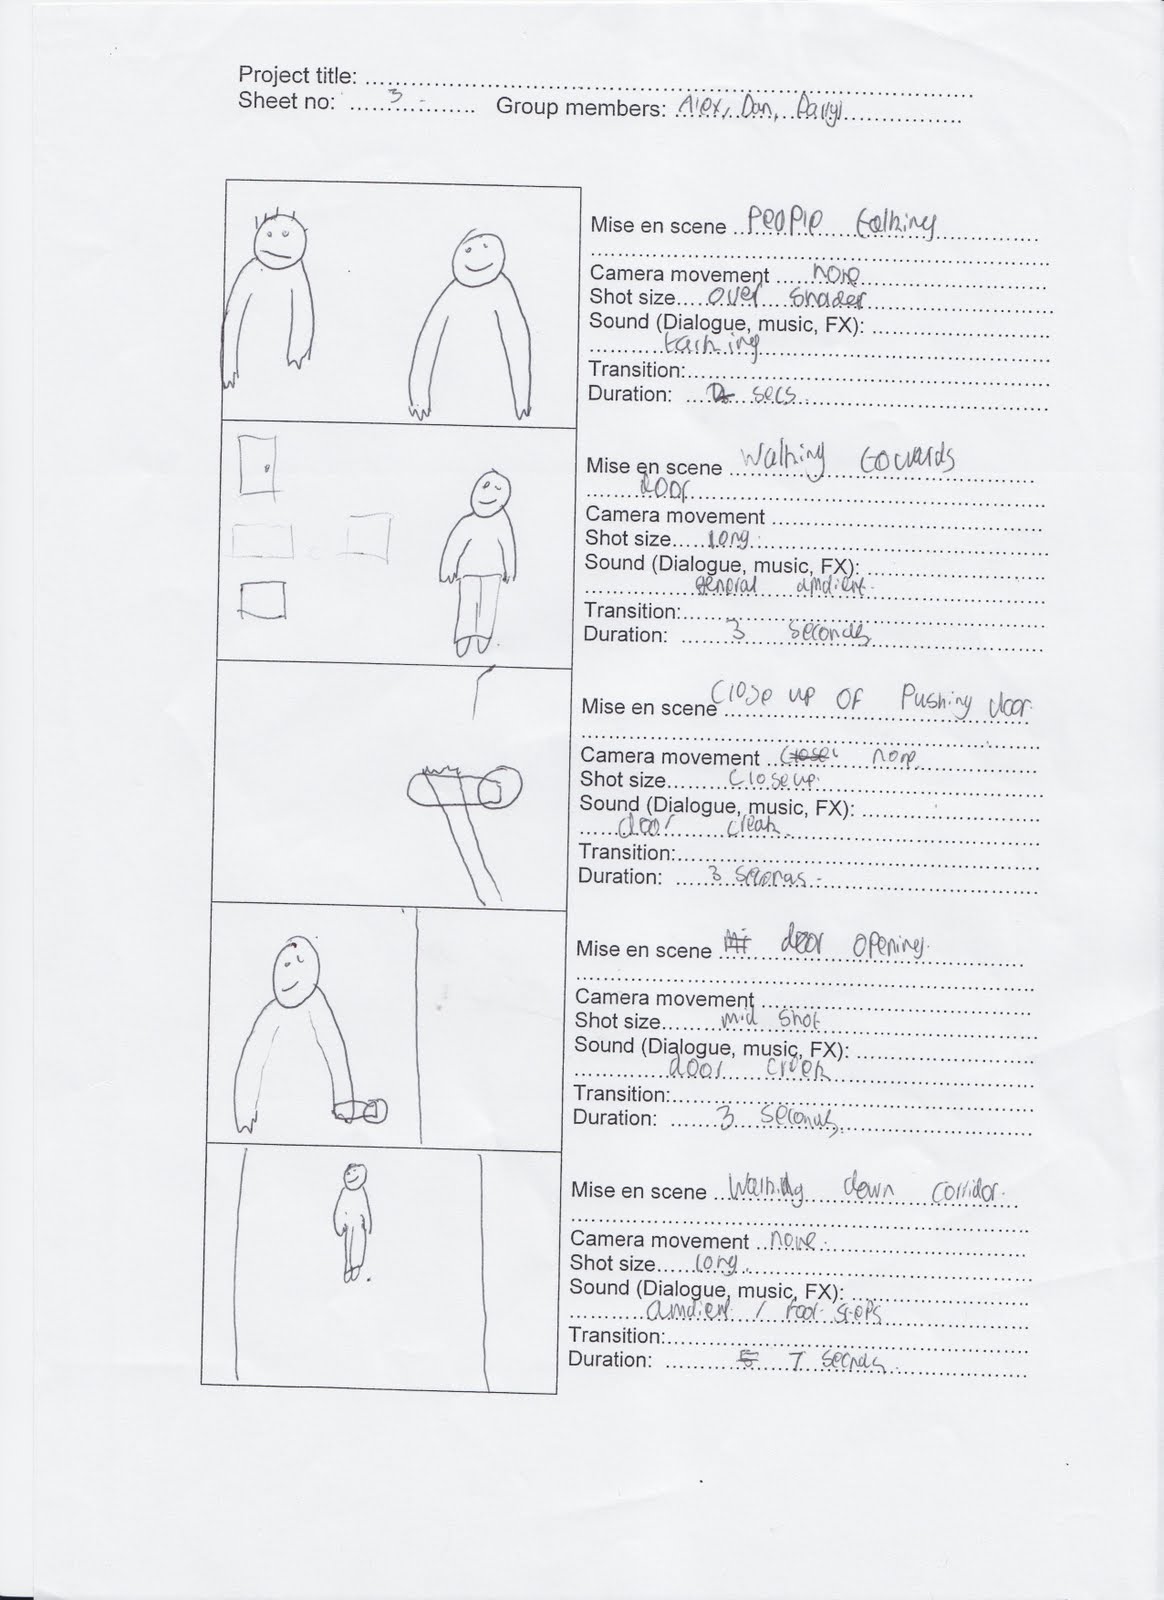 Project title:
Sheet no: 3 - Group members: Alex, Dan, Darryl
Mise en scene PeoPle talking
Camera movement none
Shot size over shoder
Sound (Dialogue, music, FX):
talking
Transition:
Duration: secs
Mise en scene Walking towards
door
Camera movement
Shot size long
Sound (Dialogue, music, FX):
general amdient
Transition:
Duration: 3 seconds
Mise en scene Close up of Pushing door
Camera movement none
Shot size Close up
Sound (Dialogue, music, FX):
door creak
Transition:
Duration: 3 seconds
Mise en scene door opening
Camera movement
Shot size mid shot
Sound (Dialogue, music, FX):
door creek
Transition:
Duration: 3 seconds
Mise en scene Walking down corridor
Camera movement none
Shot size long
Sound (Dialogue, music, FX):
amdient / foot steps
Transition:
Duration: 7 seconds